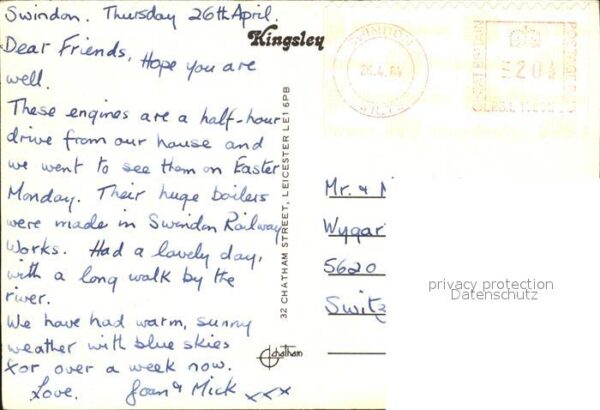 Swindon. Thursday 26th April.
Dear Friends, Hope you are
well.
These engines are a half-hour
drive from our house and
we went to see them on Easter
Monday. Their huge boilers
were made in Swindon Railway
Works. Had a lovely day,
with a long walk by the
river.
We have had warm, sunny
weather with blue skies
for over a week now.
Love. Joan & Mick xxx
Kingsley
32 CHATHAM STREET, LEICESTER LE1 6PB
Chatham
SWINDON
26.4.84
WILTS
GREAT BRITAIN
POSTAGE
Mr. &
Wygar
5620
Switz
privacy protection
Datenschutz